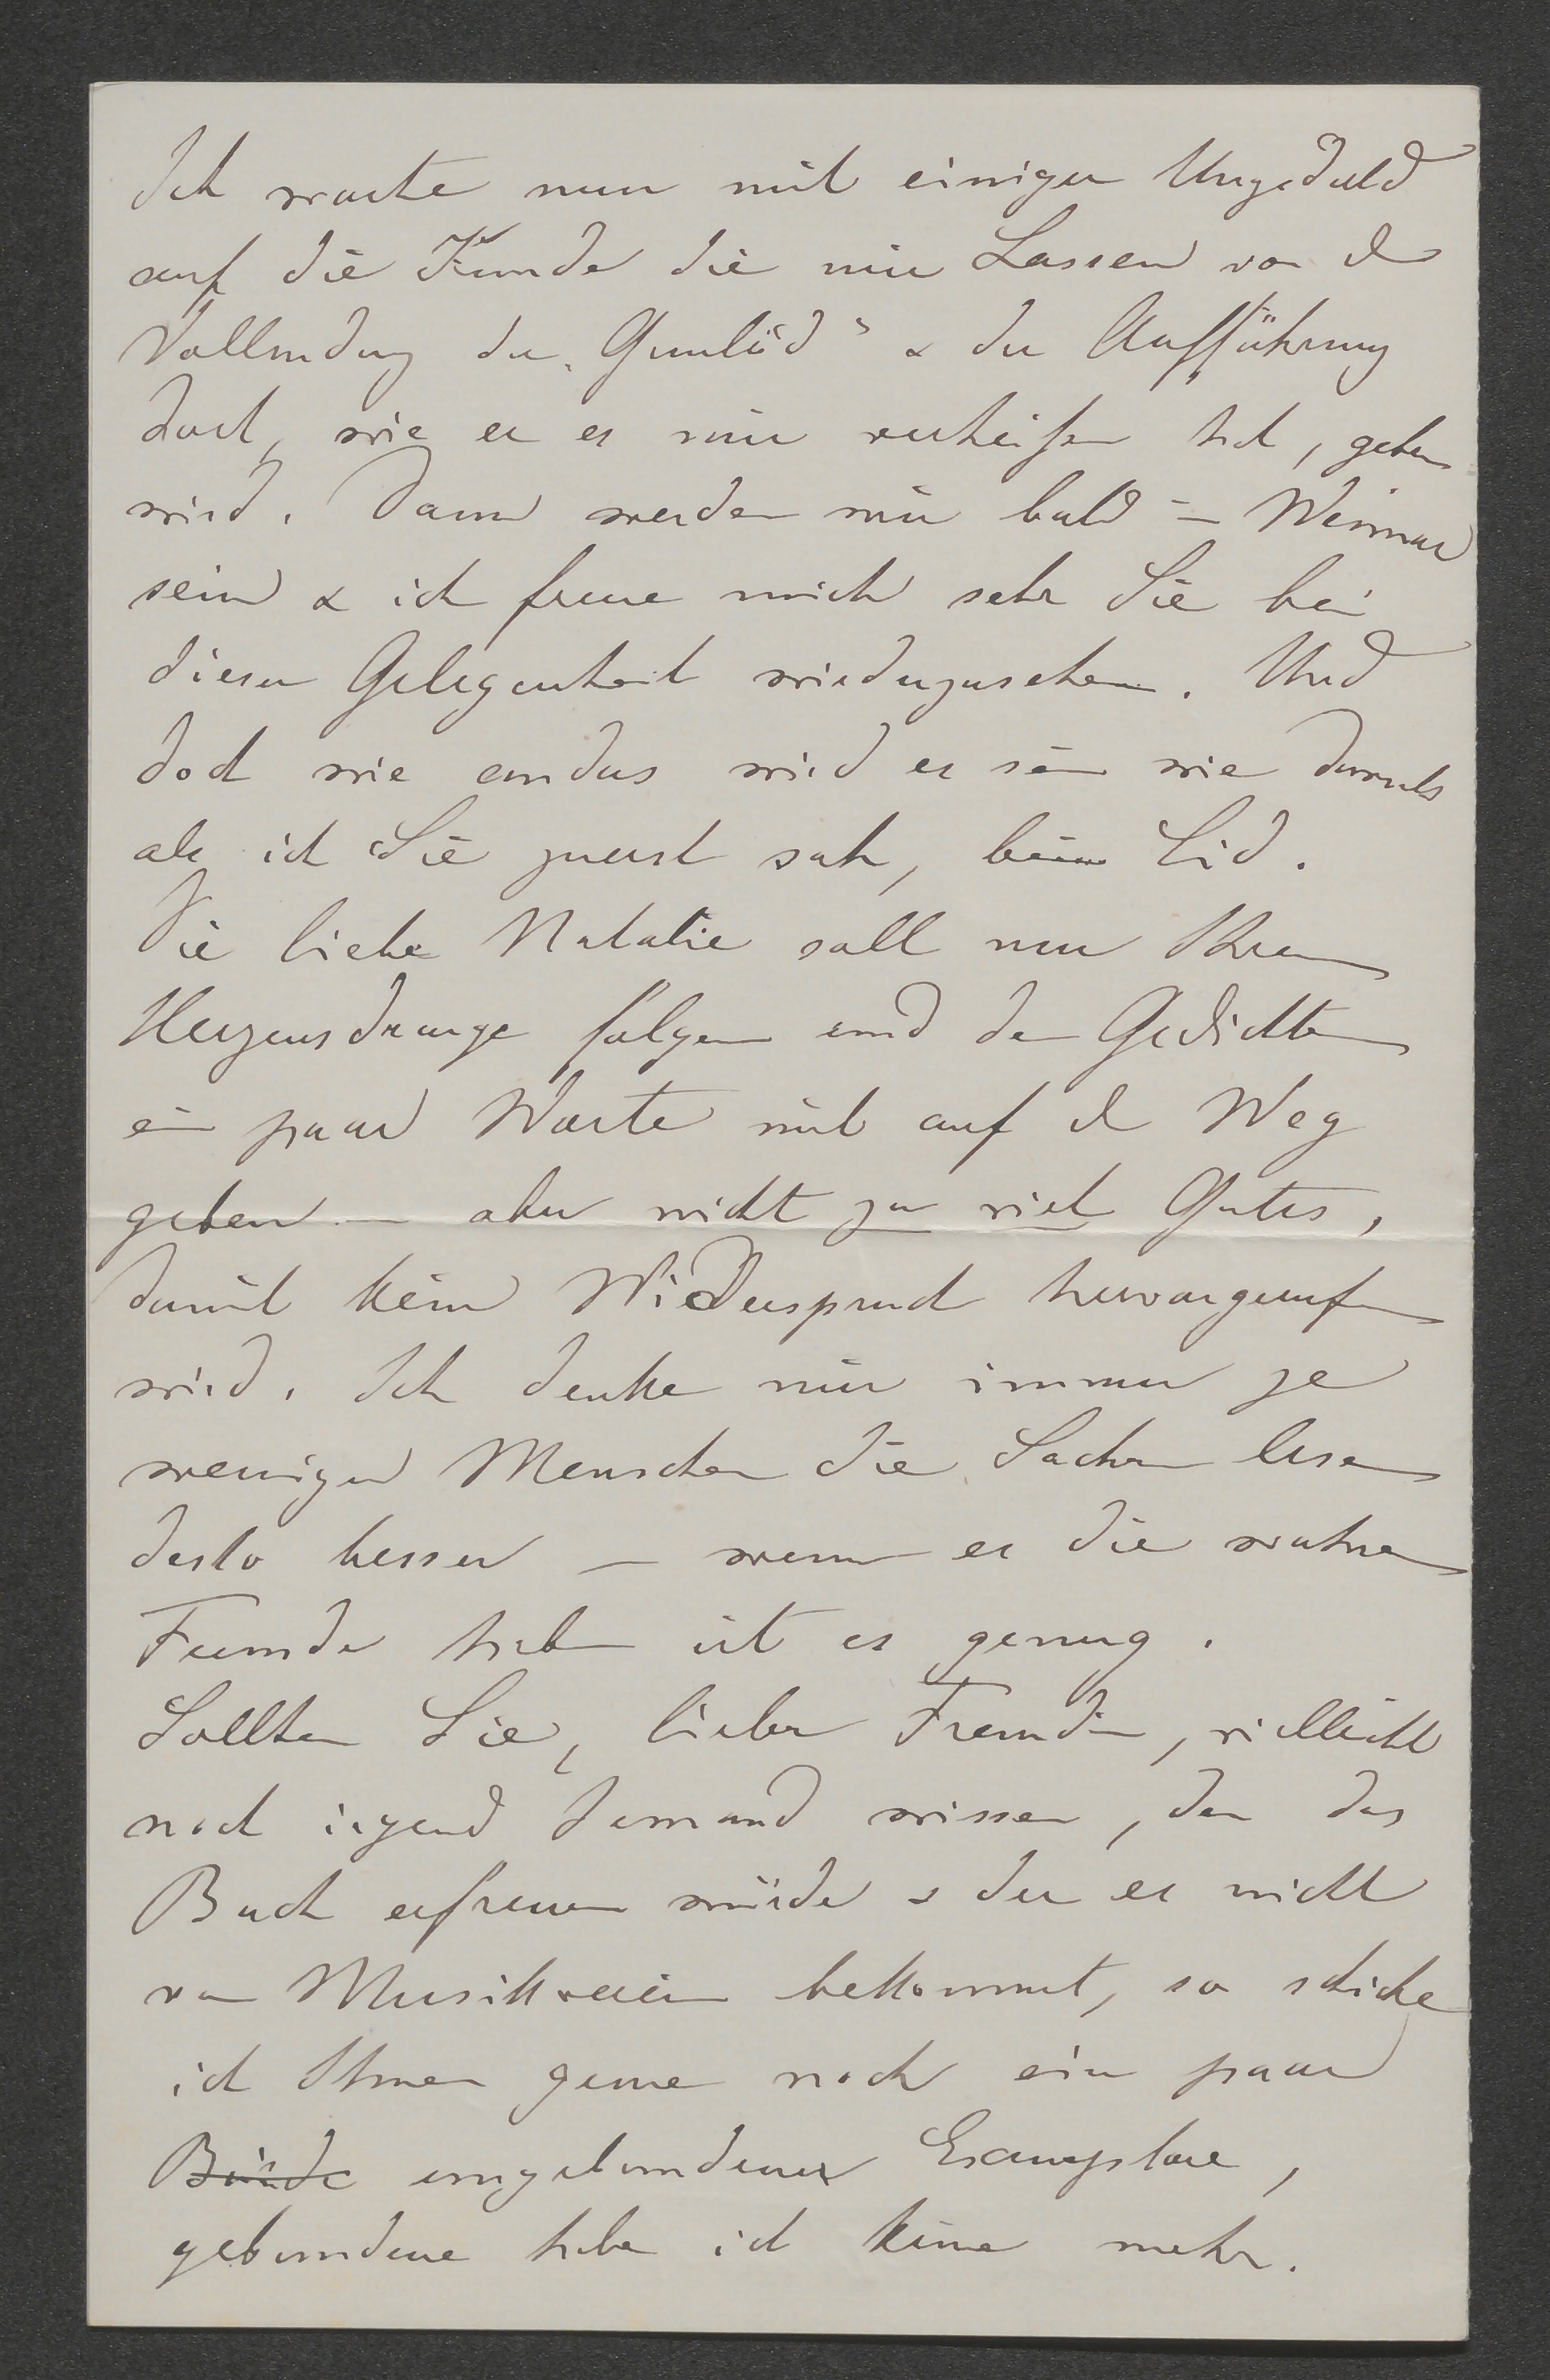 Ich warte nun mit einiger Ungeduld
auf die Kunde die mir Lassen von d
Vollendung der „Gunlöd“ & der Aufführung
dort, wie er es mir verheißen hat, geben
wird. Dann werden wir bald in Weimar
sein & ich freue mich sehr Sie bei
dieser Gelegenheit wiederzusehen. Und
doch wie anders wird es sein wie damals
als ich Sie zuerst sah, beim Cid.
Die liebe Natalie soll nur Ihrem
Herzensdrange folgen und den Gedichten
ein paar Worte mit auf d Weg
geben – aber nicht zu viel Gutes,
damit kein Widerspruch hervorgerufen
wird. Ich denke mir immer je
weniger Menschen die Sachen lesen
desto besser – wenn es die wahren
Freunde haben ist es genug.
Sollten Sie, lieber Freundin, vielleicht
noch irgend Jemand wissen, den das
Buch erfreuen würde & der es nicht
von Musikverein bekommt, so schicke
ich Ihnen gerne noch ein paar
Bände ungebundener Exemplare,
gebundene habe ich keine mehr.